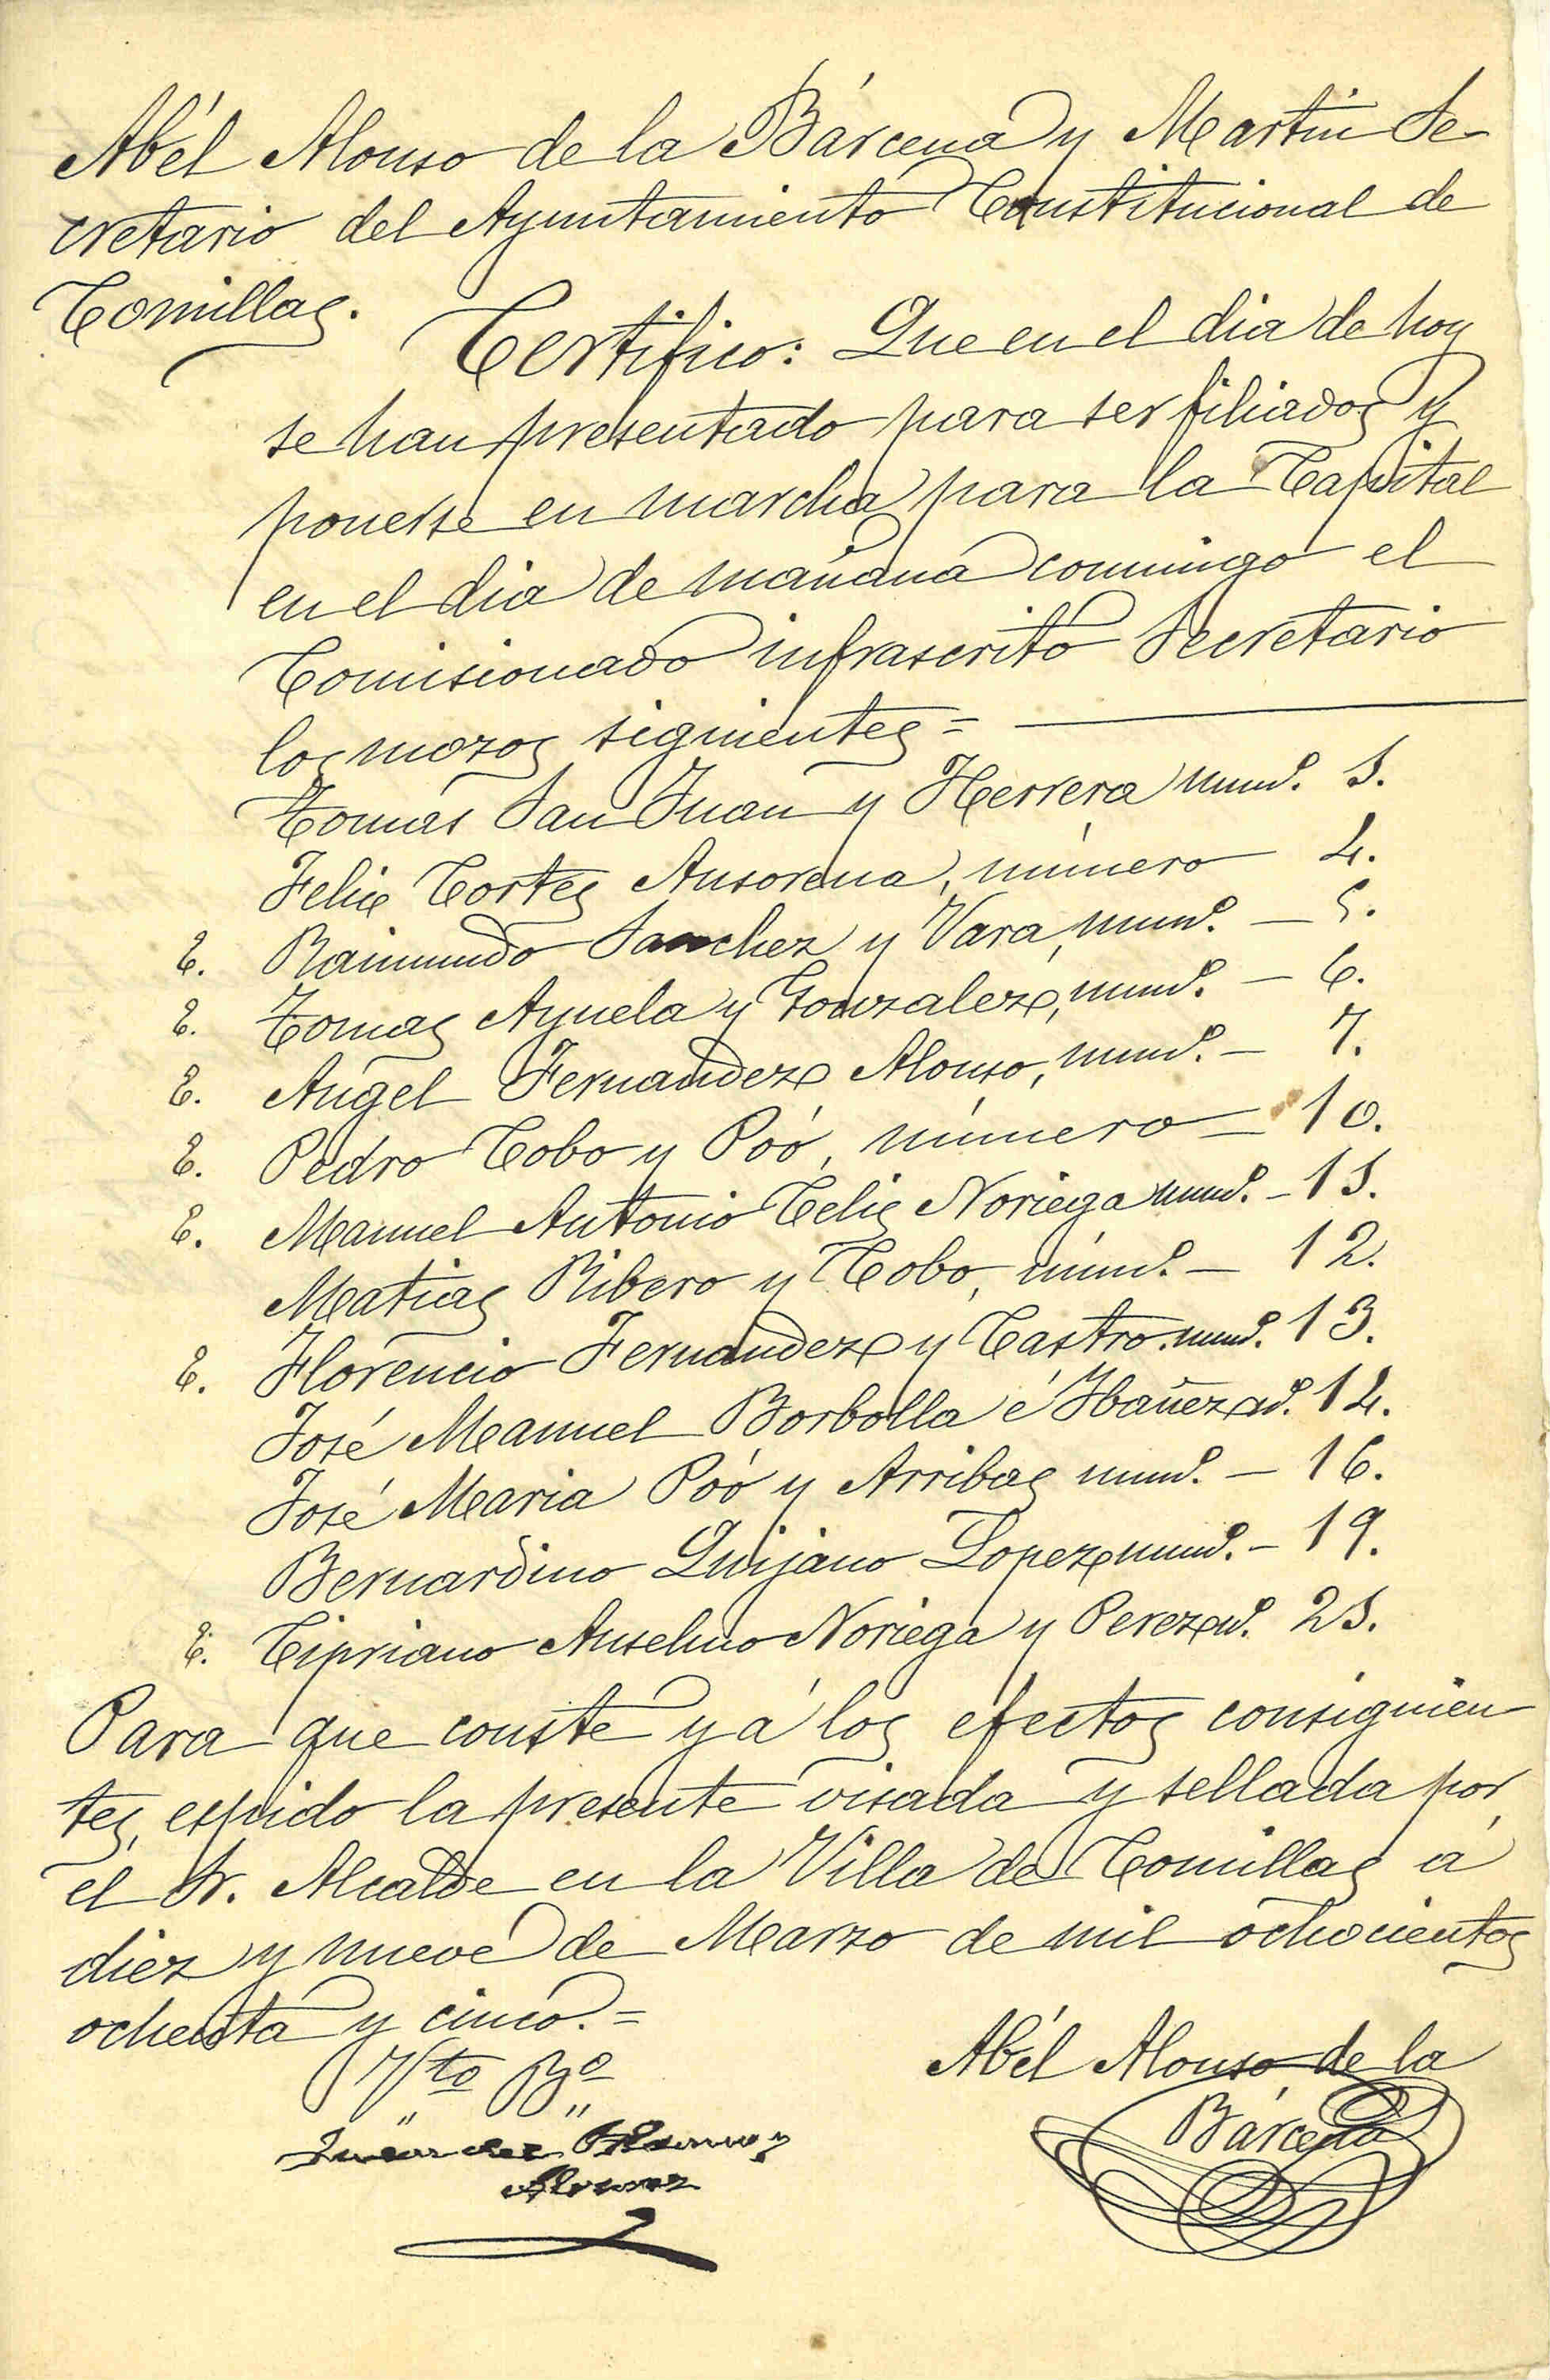 Abél Alonso de la Bárcena y Martin Se-
cretario del Ayuntamiento Constitucional de
Comillas.
Certifico: Que en el dia de hoy
se han presentado para ser filiados y
ponerse en marcha para la Capital
en el dia de mañana conmigo el
Comisionado infrascrito Secretario
los mozos siguientes =
Tomás San Juan y Herrera num.º 1.
Felix Cortes Ansorena, número 4.
E. Raimundo Sanchez y Vara, num.º — 5.
E. Tomas Ayuela y Gonzalez, num.º — 6.
E. Angel Fernandez Alonso, num.º — 7.
E. Pedro Cobo y Póo, número = 10.
E. Manuel Antonio Celis Noriega num.º — 11.
Matias Ribero y Cobo, núm.º — 12.
E. Florencio Fernandez y Castro. num.º 13.
José Manuel Borbolla é Ybañez n.º 14.
José Maria Póo y Arribas num.º — 16.
Bernardino Quijano Lopez num.º — 19.
E. Cipriano Anselmo Noriega y Perez n.º 21.
Para que conste y á los efectos consiguien
tes, espido la presente visada y sellada por
el Sr. Alcalde en la Villa de Comillas á
diez y nueve de Marzo de mil ochocientos
ochenta y cinco. =
Vto Bº
Abél Alonso de la
Bárcena